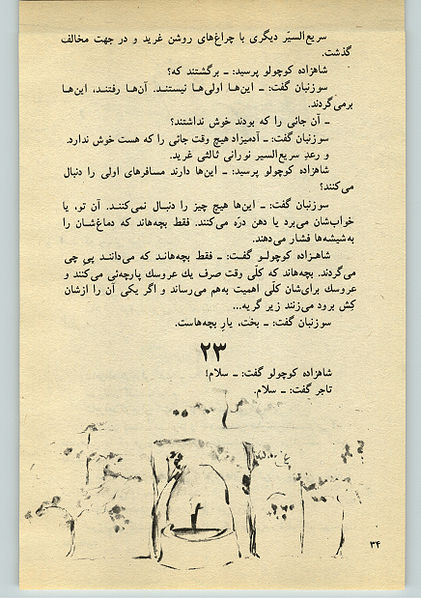 سریع‌السیّر دیگری با چراغ‌های روشن غرید و در جهت مخالف
گذشت.
شاهزاده کوچولو پرسید: ـ برگشتند که؟
سوزنبان گفت: ـ این‌ها اولی‌ها نیستند. آن‌ها رفتند، این‌ها
برمی‌گردند.
ـ آن جائی را که بودند خوش نداشتند؟
سوزنبان گفت: ـ آدمیزاد هیچ وقت جائی را که هست خوش ندارد.
و رعدِ سریع‌السیر نورانی ثالثی غرید.
شاهزاده کوچولو پرسید: ـ این‌ها دارند مسافرهای اولی را دنبال
می‌کنند؟
سوزنبان گفت: ـ این‌ها هیچ چیز را دنبال نمی‌کننـد. آن تو، یا
خواب‌شان می‌برد یا دهن درّه می‌کنند. فقط بچه‌هاند که دماغ‌شـان را
به‌شیشه‌ها فشار می‌دهند.
شاهـزاده کوچولـو گفـت: ـ فقط بچه‌هانـد که می‌داننـد پی چی
می‌گردند. بچه‌هاند که کلّی وقت صرف یك عروسك پارچه‌ئی می‌کنند و
عروسك برای‌شان کلّی اهمیت به‌هم می‌رساند و اگر یکی آن را ازشان
کِش برود می‌زنند زیر گریه...
سوزنبان گفت: ـ بخت، یارِ بچه‌هاست.
۲۳
شاهزاده کوچولو گفت: ـ سلام!
تاجر گفت: ـ سلام.
۳۴